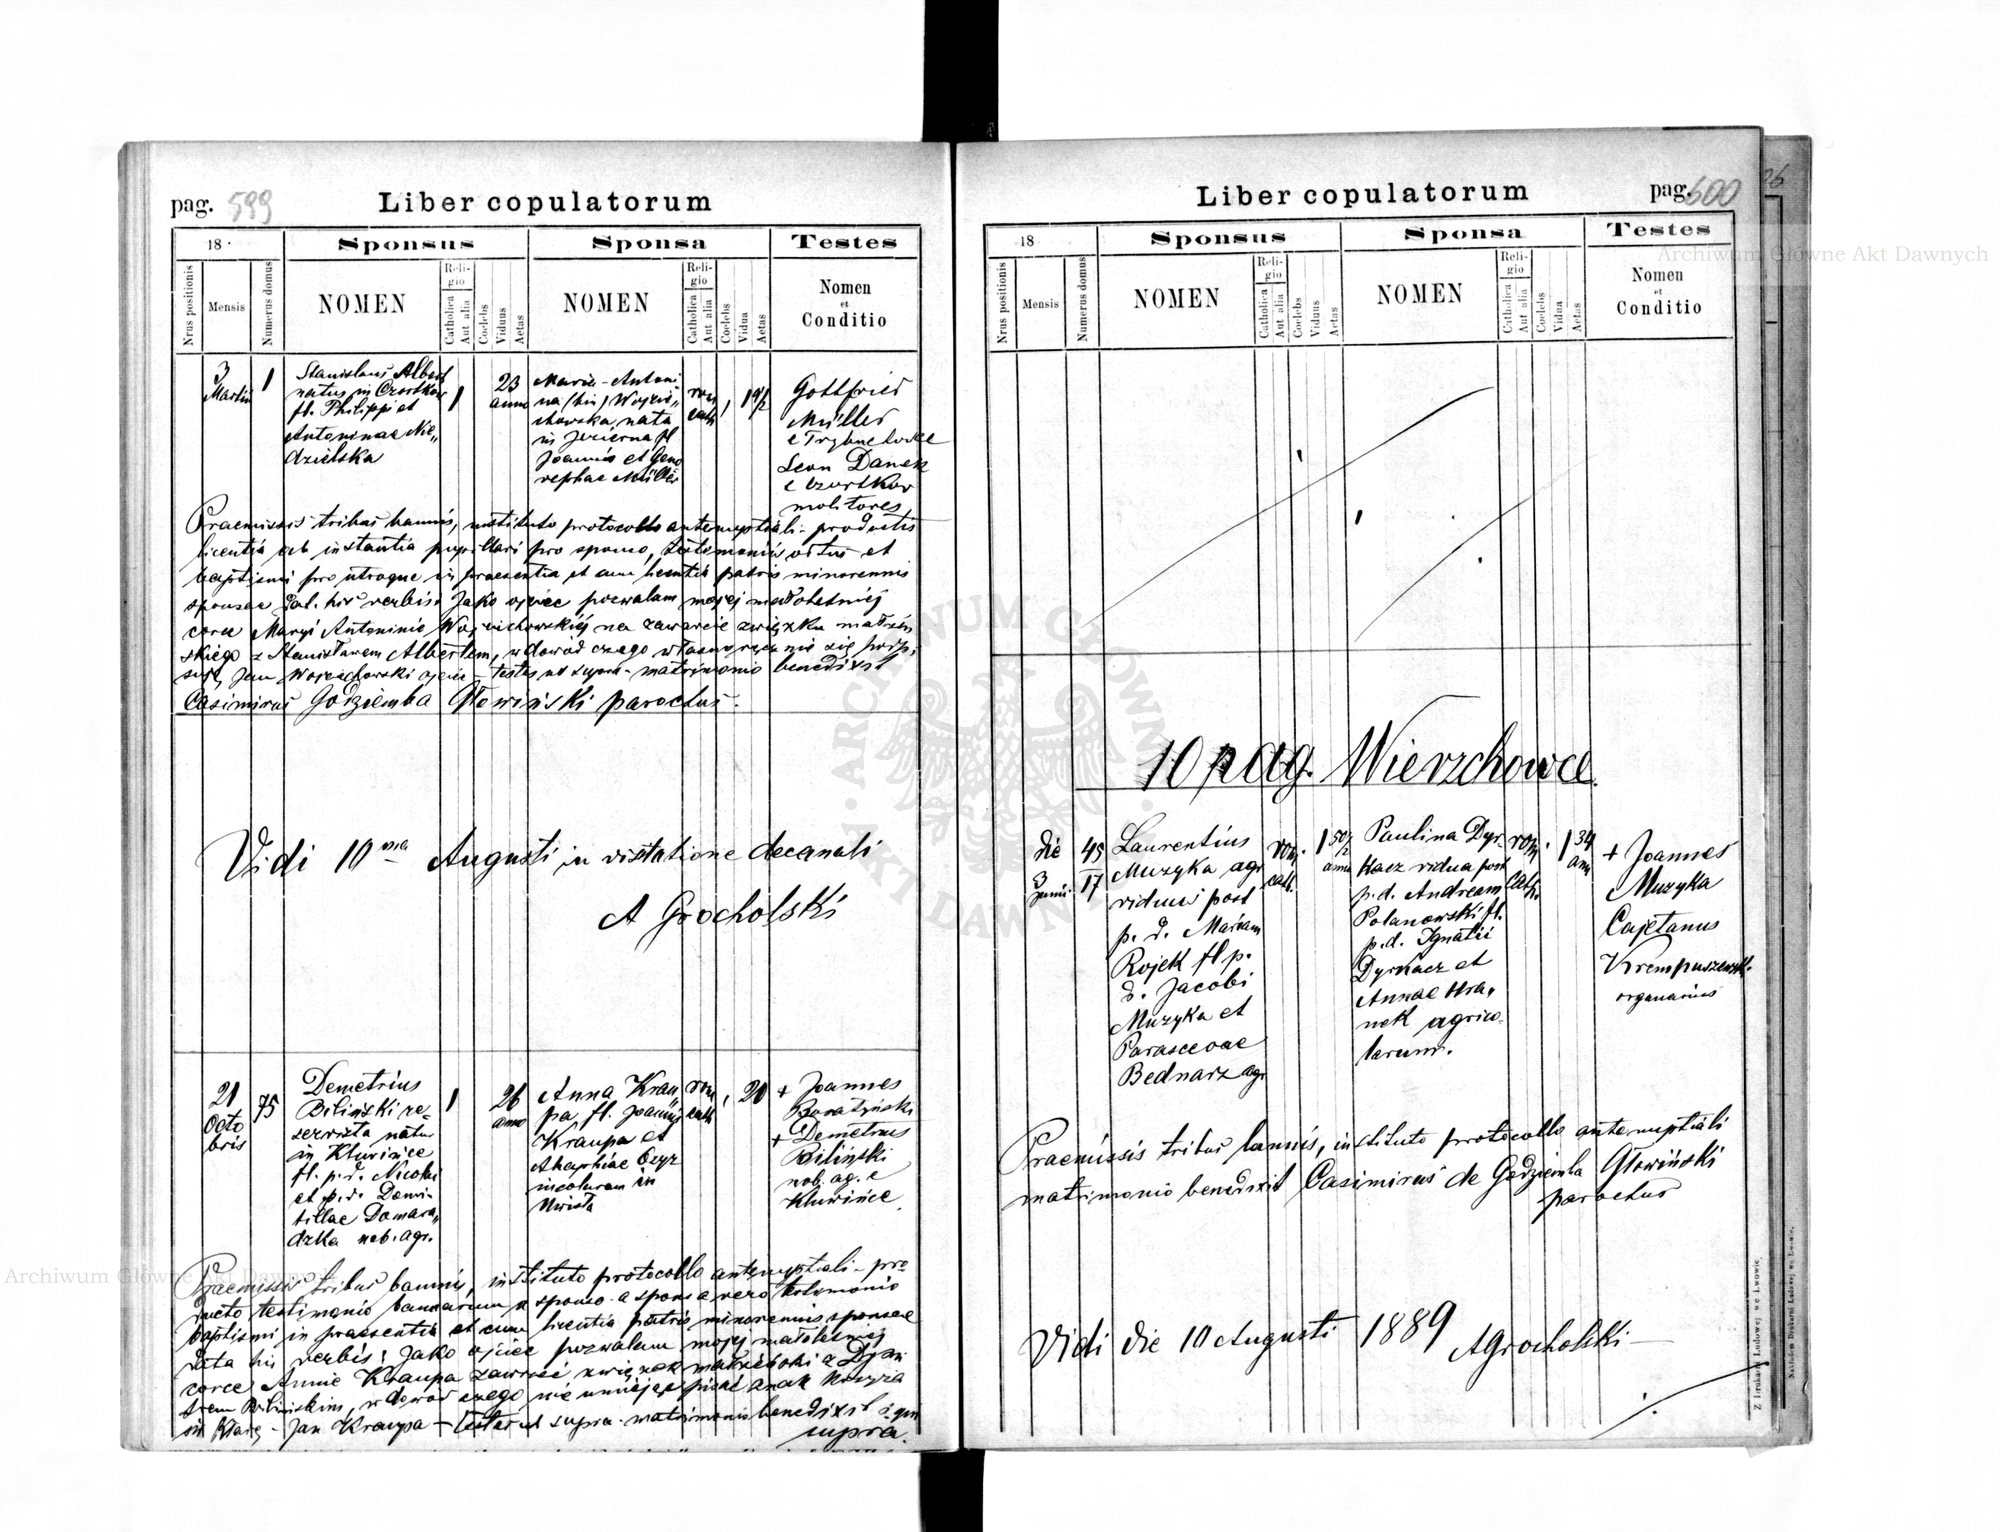 pag. 599
Liber copulatorum
18
Sponsus
Sponsa
Testes
Nrus positionis
Mensis
Numerus domus
NOMEN
Religio
Catholica
Aut alia
Coelebs
Viduus
Aetas
NOMEN
Religio
Catholica
Aut alia
Coelebs
Vidua
Aetas
Nomen
et
Conditio
3
Martii
1
Stanislaus Albert
natus in Czortków
fl. Philippi et
Antoninae Nie„
dzielska
1
23
anno
Maria-Antoni
na (bin) Wojcie„
chowska nata
in Jezierna fl
Joannis et Geno
vephae Müller
rom
cath
1
19 1/2
Gottfried
Müller
Leon Danek
e Czortkow
molitores
Praemissis tribus bannis, instituto protocollo antenuptiali - productis
licentia ab instantia pupillari pro sponso, testimoniis ortus et
baptismi pro utroque in praesentia et cum licentia patris minorennis
sponsae dat. his verbis: Jako ojciec pozwalam mojej małoletniej
corce Maryi Antoninie Wojciechowskiéj na zawarcie związku małżeń
skiego z Stanisławem Albertem, w dowód czego własnoręcznie się podpi
suję, Jan Wojciechowski ojciec - testes ut supra - matrimonio benedixit
Casimirus Godziemba Głowiński parochus.
Vidi 10ma Augusti in visitatione decanali
A Grocholski
21
Octo
bris
75
Demetrius
Biliński re„
servista natus
in Kluwińce
fl. p. d. Nicolai
et p. d. Domi-
tillae Domara„
dzka nob. agr.
1
26
anno
Anna Krau„
pa, fl. Joannis
Kraupa et
Agaphiae Czyż
incolarum in
Uwisła
rom
cath
1
20
+ Joannes
Buratyński
+ Demetrius
Biliński
nob. ag. e
Kluwińce
Praemissis tribus bannis, instituto protocollo antenuptiali - pro„
ducto testimonio bannorum a sponso - a sponsa vero testimonio
baptismi in praesentia et cum licentia patris minorennis sponsae
data his verbis: Jako ojciec pozwalam mojej małoletniej
corce Annie Kraupa zawrzéć związek małżeński z Dymi
trem Bilińskim, w dowód czego nie umiejąc pisać znak krzyża
św. kładę - Jan Kraupa - testes ut supra - matrimonio benedixit qui
supra.
Liber copulatorum
pag. 600
18
Sponsus
Sponsa
Testes
Nrus positionis
Mensis
Numerus domus
NOMEN
Religio
Catholica
Aut alia
Coelebs
Viduus
Aetas
NOMEN
Religio
Catholica
Aut alia
Coelebs
Vidua
Aetas
Nomen
et
Conditio
10 pag. Wierzchowce
die
3
Junii
45
17
Laurentius
Muzyka agr
viduus post
p. d. Mariam
Rojek fl p.
d. Jacobi
Muzyka et
Parascevae
Bednarz agr
rom.
cath.
1
50 1/2
anno
Paulina Dyr-
kacz vidua post
p. d. Andream
Polanowski fl.
p. d. Ignatii
Dyrkacz et
Annae Hra„
nek agrico-
larum.
rom.
cath.
1
34
ann
+ Joannes
Muzyka
Cajetanus
Krempuszewski
organarius
Praemissis tribus bannis, instituto protocollo antenuptiali
matrimonio benedixit Casimirus de Godziemba Głowiński
parochus
Vidi die 10 Augusti 1889 AGrocholski
Z Drukarni Ludowej we Lwowie.
Nakładem Drukarni Ludowej we Lwowie.
Archiwum Główne Akt Dawnych
Archiwum Główne Akt Dawnych
ARCHIWUM GŁÓWNE AKT DAWNYCH